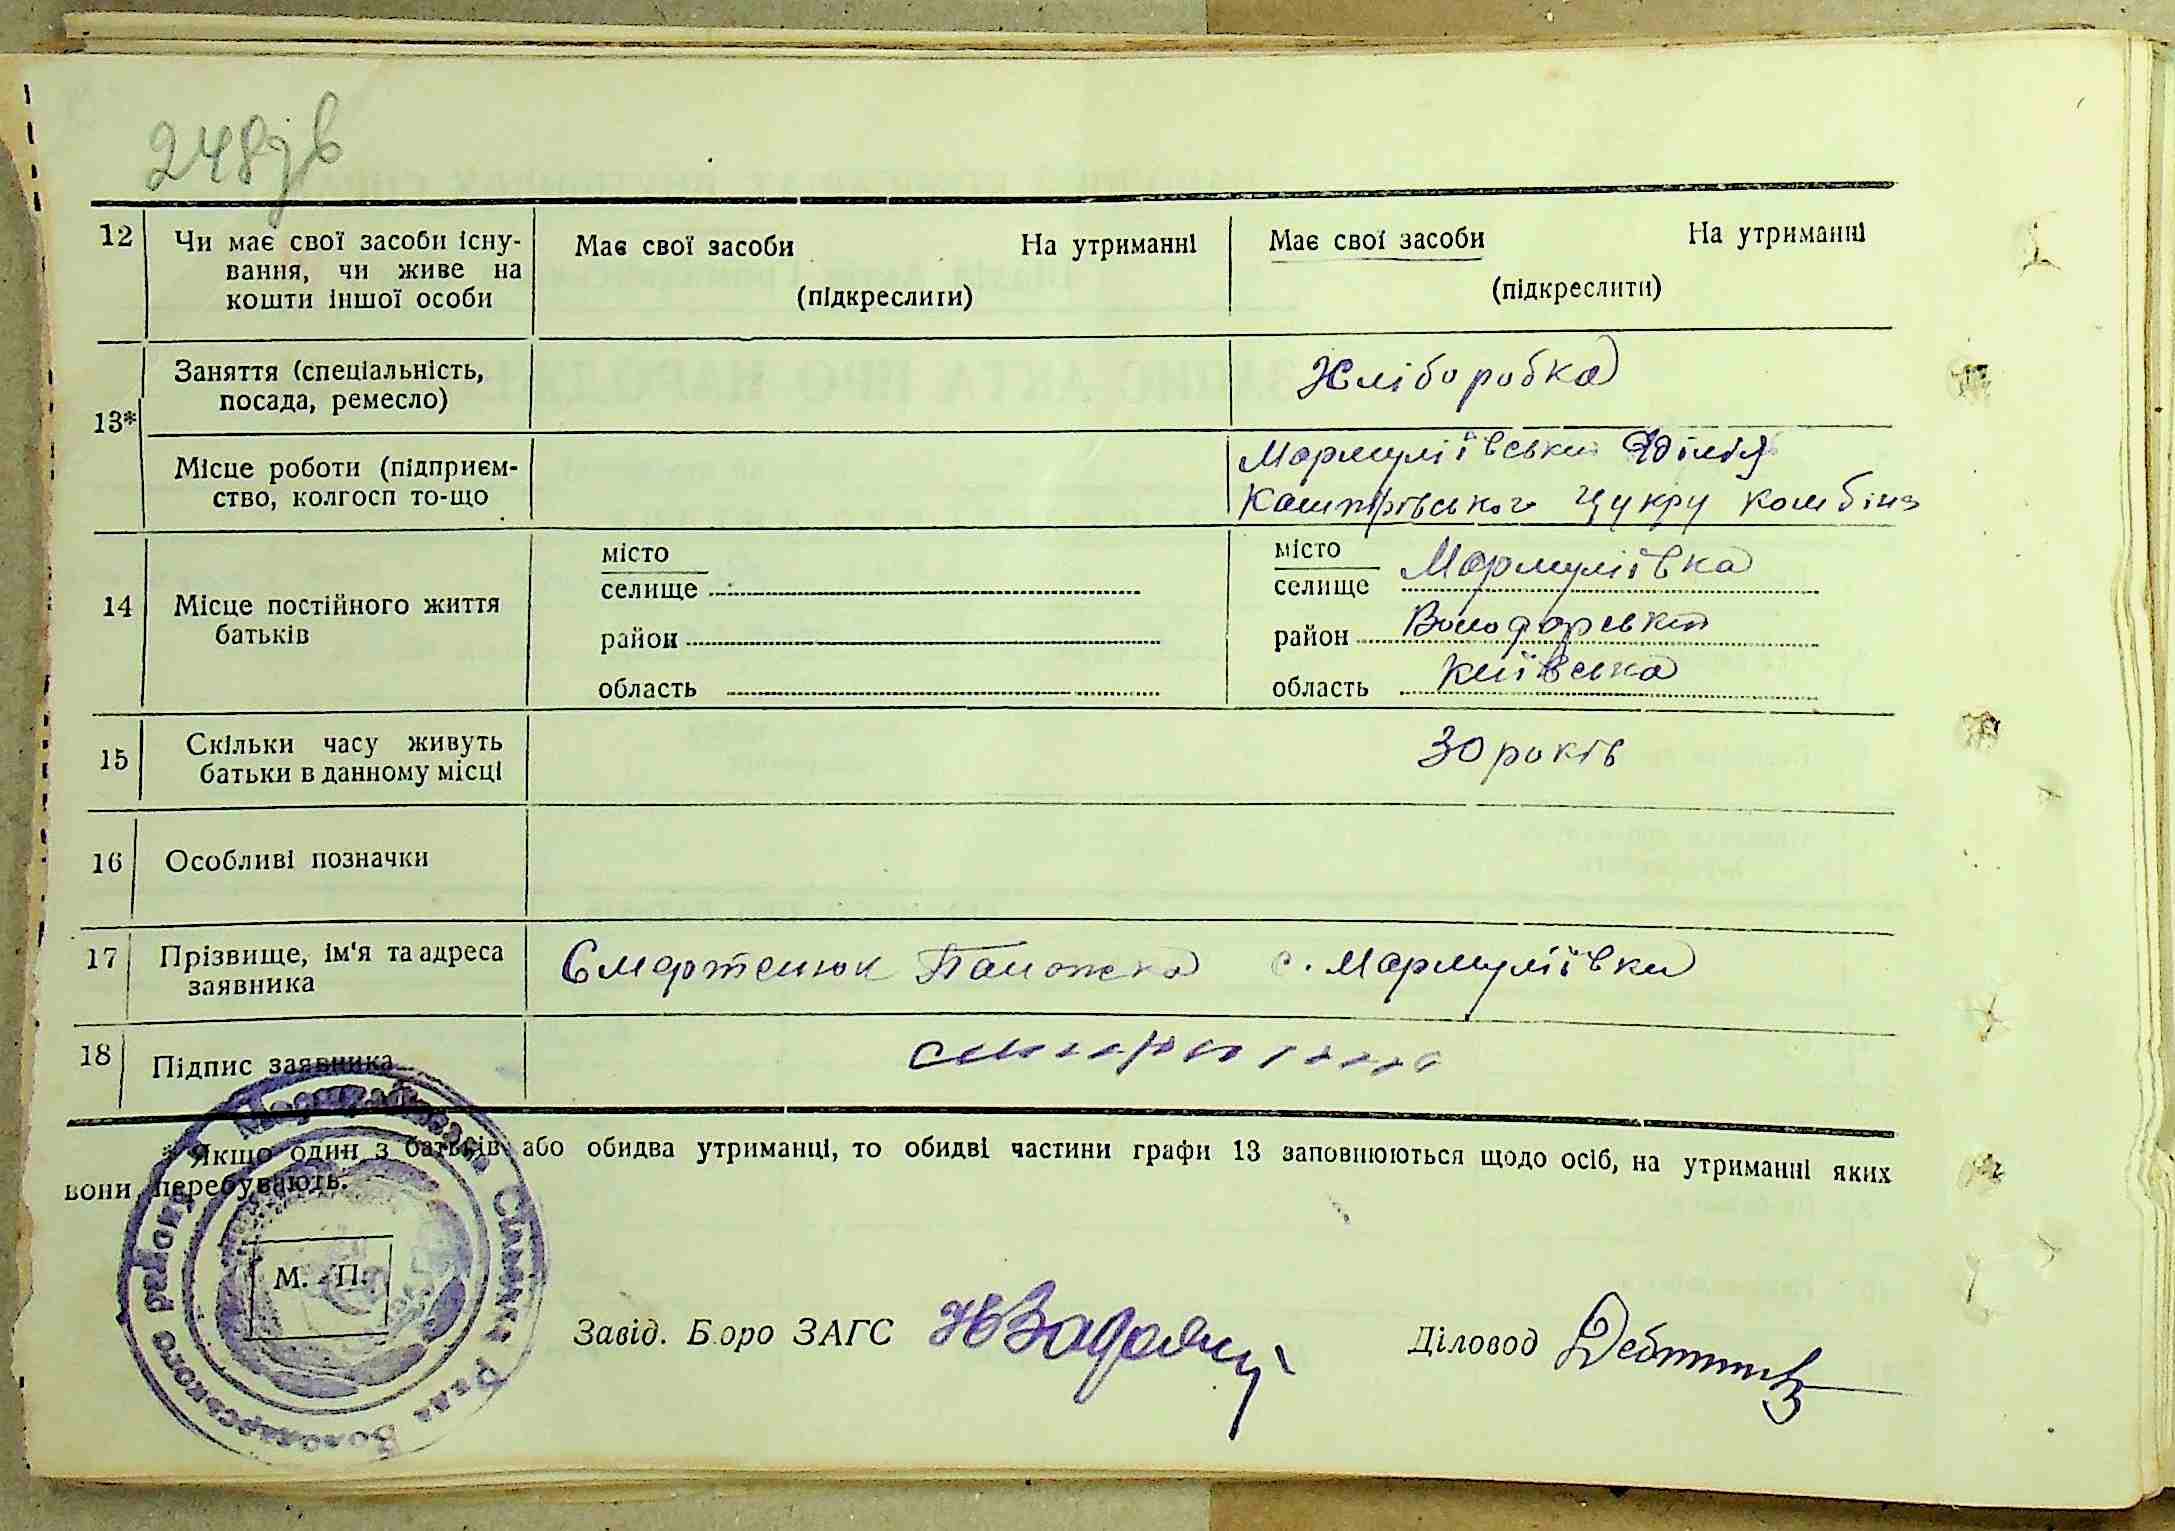 248зв
12 Чи має свої засоби існу- Має свої засоби На утриманні Має свої засоби На утриманні
вання, чи живе на
кошти іншої особи (підкреслити) (підкреслити)
13* Заняття (спеціальність, Хліборобка
посада, ремесло)
Місце роботи (підприєм- Мармуліївський
ство, колгосп то-що цукру комбін
14 Місце постійного життя батьків
місто місто
селище селище Мармуліївка
район район Володарський
область область Київська
15 Скільки часу живуть 30 років
батьки в данному місці
16 Особливі позначки
17 Прізвище, ім'я та адреса Смартенюк с. Мармуліївки
заявника
18 Підпис заявника
* Якщо один з батьків або обидва утриманці, то обидві частини графи 13 заповнюються щодо осіб, на утриманні яких
вони перебувають.
Сільська Рада Володарського району
М. П.
Завід. Бюро ЗАГС
Діловод